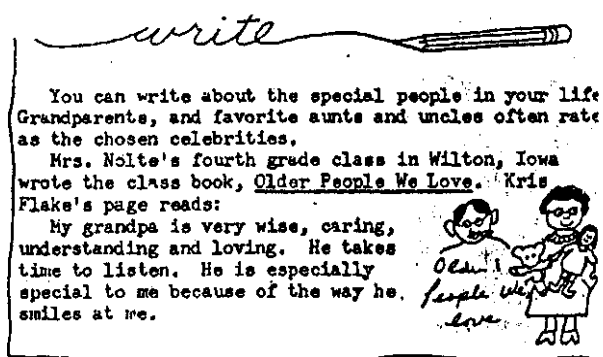 write
You can write about the special people in your life
Grandparents, and favorite aunts and uncles often rate
as the chosen celebrities.
Mrs. Nolte's fourth grade class in Wilton, Iowa
wrote the class book, Older People We Love. Kris
Flake's page reads:
My grandpa is very wise, caring,
understanding and loving. He takes
time to listen. He is especially
special to me because of the way he
smiles at me.
Older
People We
love